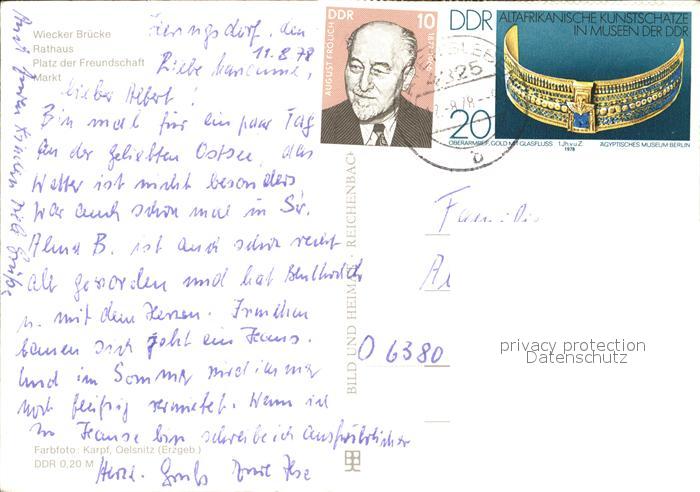 Wiecker Brücke
Rathaus
Platz der Freundschaft
Markt
den
11.8.78
Liebe Marianne,
lieber Albert!
Bin mal für ein paar Tag
an der geliebten Ostsee, das
Wetter ist nicht besonders
war auch schon mal in
Alma B. ist auch schon recht
alt geworden und hat
u. mit dem Herzen.
bauen sich jetzt ein Haus.
Und im Sommer wird immer
noch fleißig vermietet. Wenn ich
zu Hause bin schreibe ich ausführlicher
Herzl. Gruß Eure Ilse
Farbfoto: Karpf, Oelsnitz (Erzgeb.)
DDR 0,20 M
BILD UND HEIMAT REICHENBACH
DDR 10
AUGUST FRÖLICH
DDR ALTAFRIKANISCHE KUNSTSCHÄTZE
IN MUSEEN DER DDR
20
OBERARMREIF, GOLD MIT GLASFLUSS 1.Jh.v.u.Z. ÄGYPTISCHES MUSEUM BERLIN
1978
2325
b
Familie
O 6380
privacy protection
Datenschutz